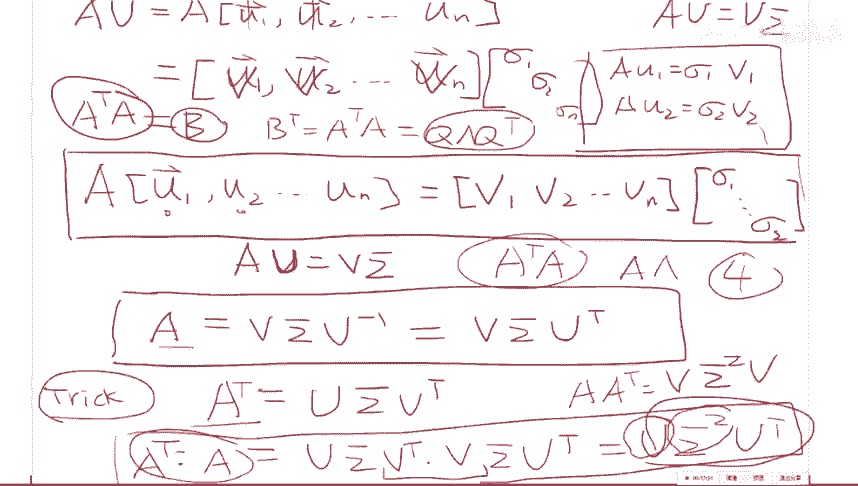 AU = A[u⃗₁, u⃗₂, ... uₙ]    AU = VΣ
= [V⃗₁, V⃗₂ ... V⃗ₙ] [σ₁ σ₂ σₙ]    Au₁ = σ₁ V₁
Au₂ = σ₂ V₂
AᵀA = B    Bᵀ = AᵀA = QΛQᵀ
A [u⃗₁, u₂ ... uₙ] = [V₁ V₂ ... Vₙ] [σ₁ ... σ₂]
AU = VΣ    AᵀA    AΛ    4
A = VΣU⁻¹ = VΣUᵀ
Trick    Aᵀ = UΣVᵀ    AAᵀ = VΣ²V
Aᵀ·A = UΣVᵀ·VΣUᵀ = UΣ²Uᵀ